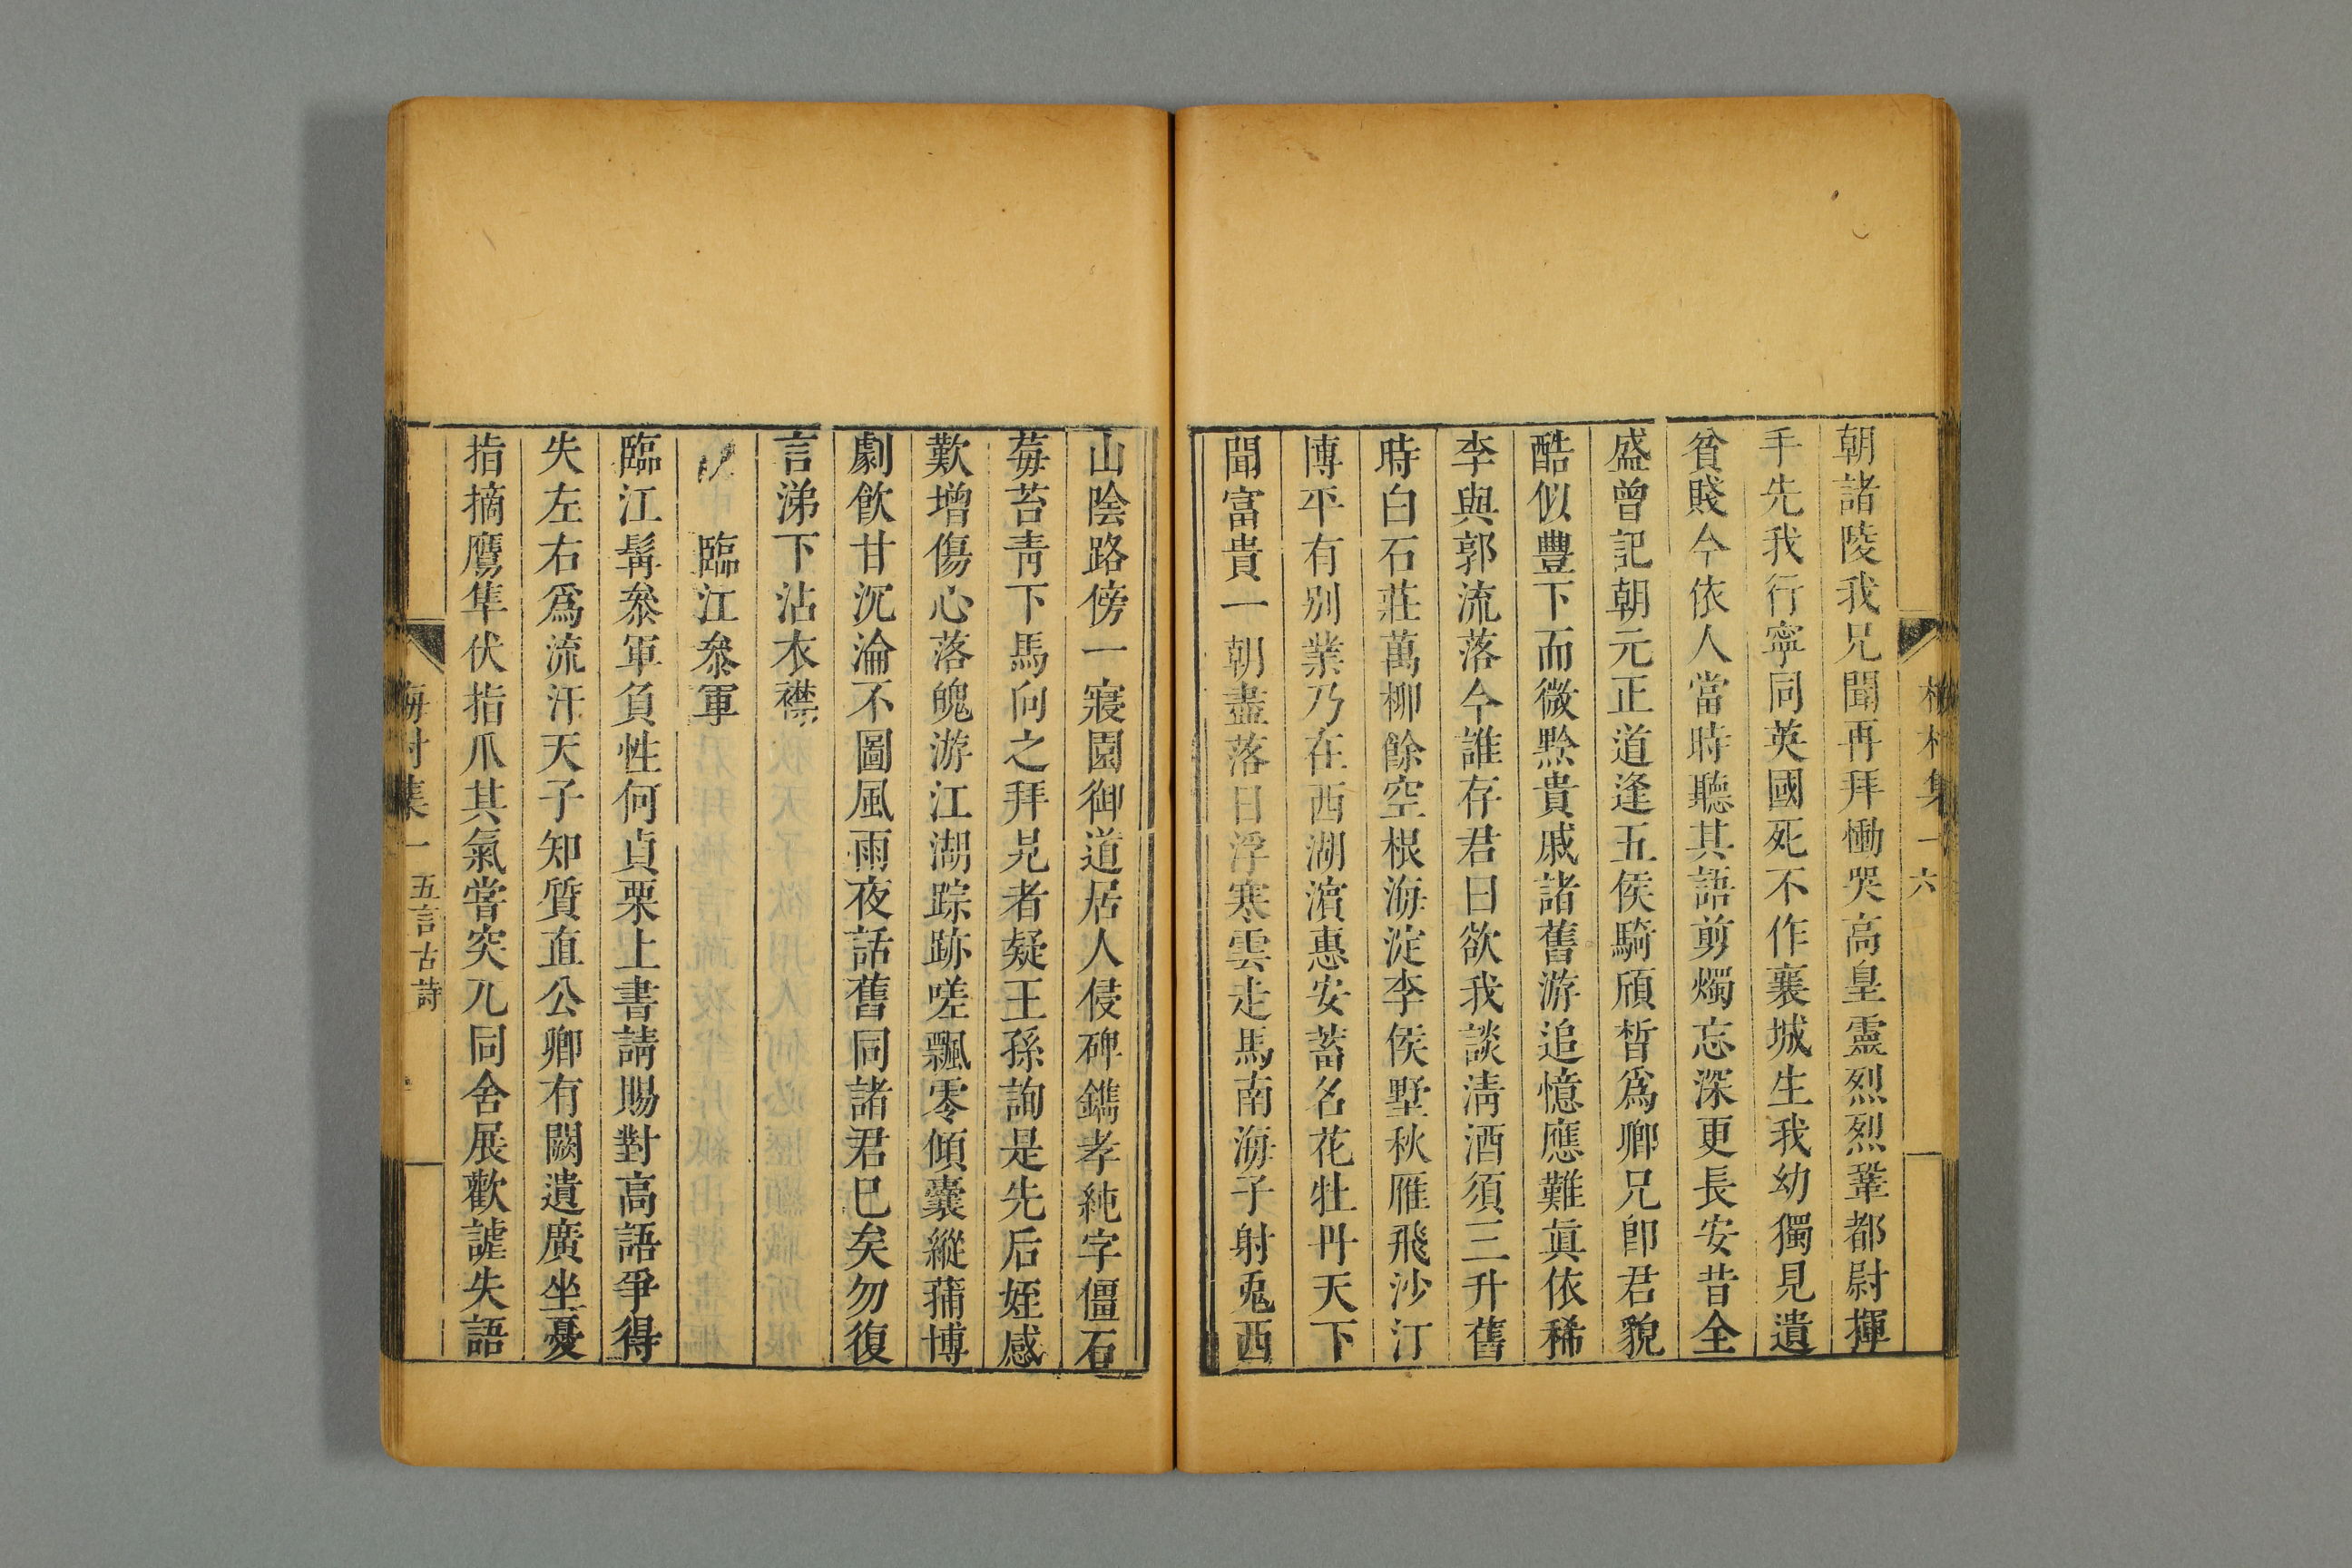 梅村集一 六
朝諸陵我兄聞再拜慟哭高皇靈烈烈鞏都尉揮
手先我行寧同英國死不作襄城生我幼獨見遺
貧賤今依人當時聽其語剪燭忘深更長安昔全
盛曾記朝元正道逢五侯騎頎皙爲卿兄卽君貌
酷似豐下而微黔貴戚諸舊游追憶應難眞依稀
李與郭流落今誰存君曰欲我談淸酒須三升舊
時白石莊萬柳餘空根海淀李侯墅秋雁飛沙汀
博平有别業乃在西湖濱惠安蓄名花牡丹天下
聞富貴一朝盡落日浮寒雲走馬南海子射兎西
山陰路傍一寢園御道居人侵碑鐫孝純字僵石
莓苔靑下馬向之拜見者疑王孫詢是先后姪感
歎增傷心落魄游江湖踪跡嗟飄零傾囊縱蒲博
劇飮甘沉淪不圖風雨夜話舊同諸君已矣勿復
言涕下沾衣襟
臨江叅軍
臨江髯叅軍負性何貞栗上書請賜對高語爭得
失左右爲流汗天子知質直公卿有闕遺廣坐憂
指摘鷹隼伏指爪其氣嘗突兀同舍展歡謔失語
梅村集一 五言古詩